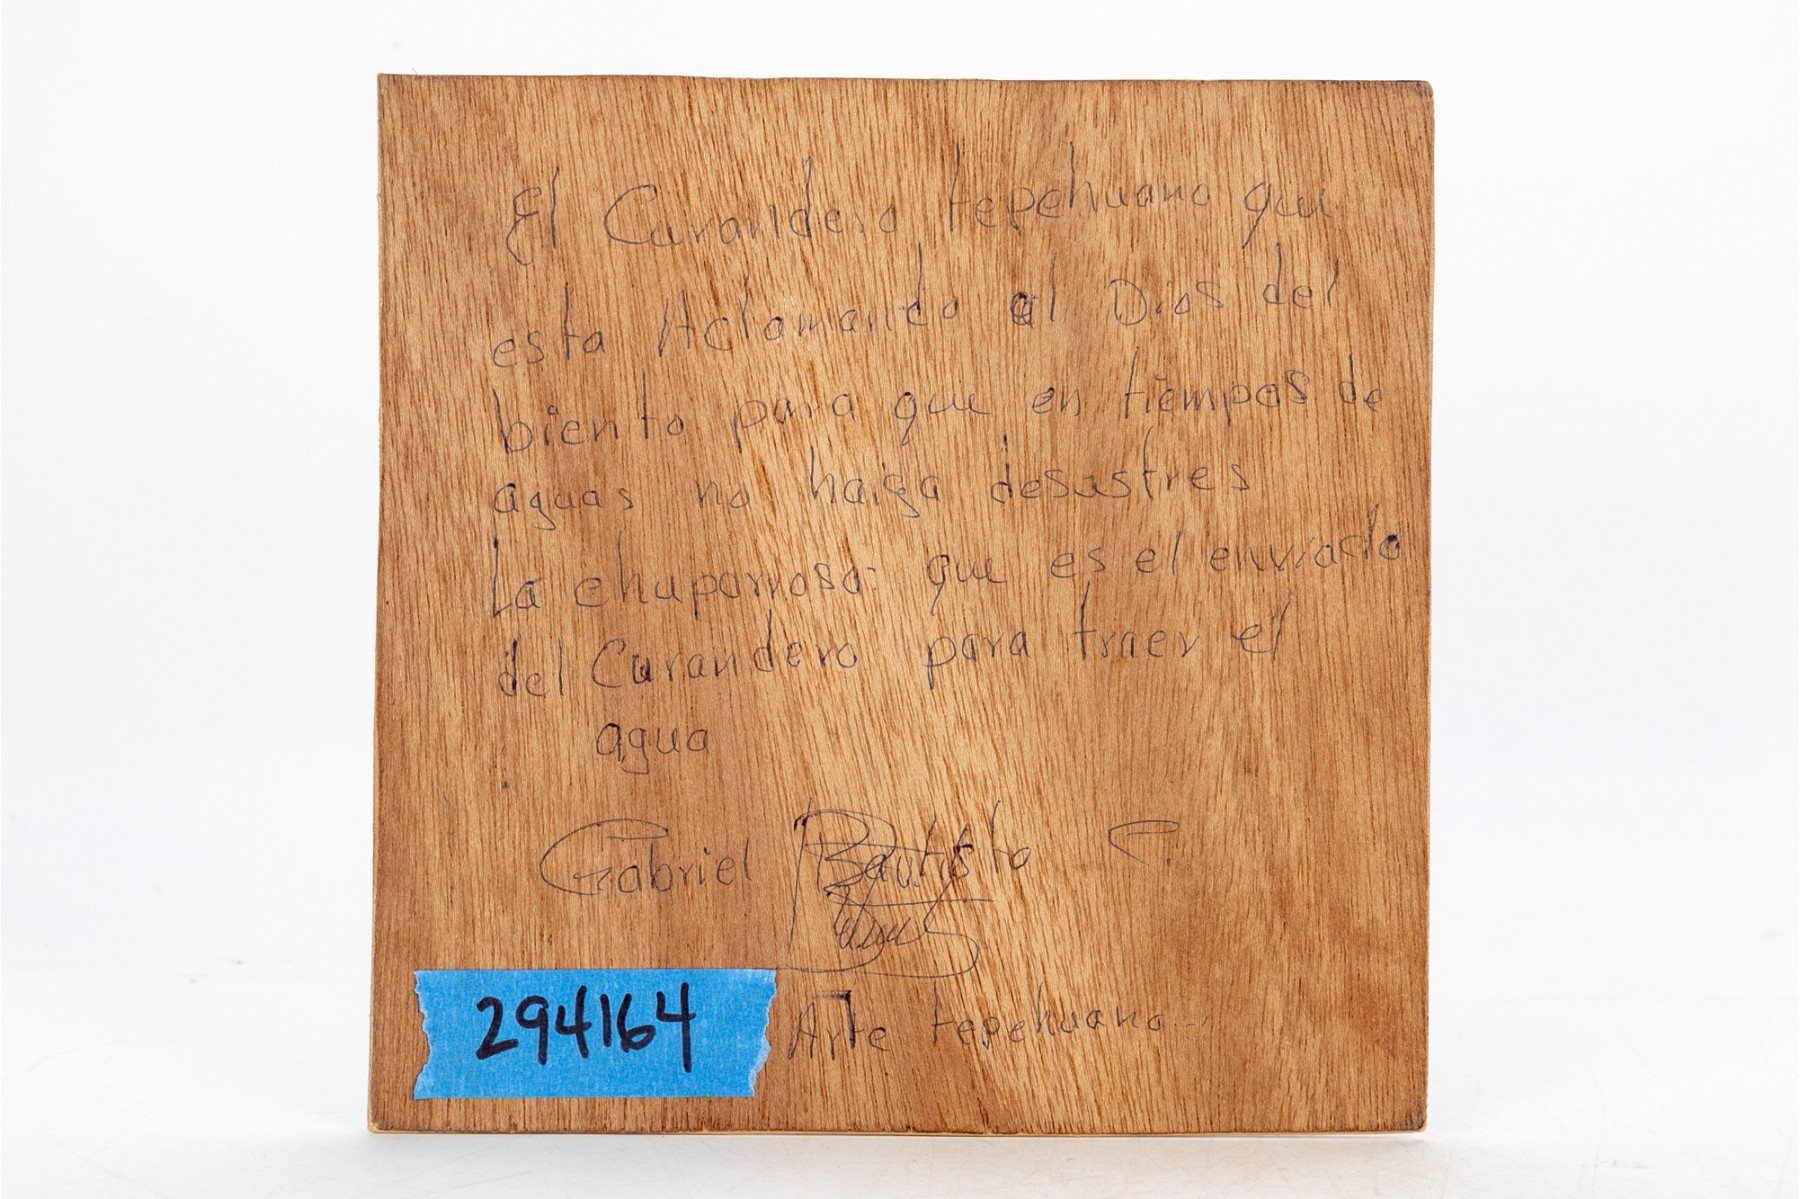 El Curandero tepehuano que
esta Aclamando al Dios del
biento para que en tiempos de
aguas no haiga desastres
La chuparrosa: que es el enviado
del Curandero para traer el
agua
Gabriel Bautista C.
294164
Arte tepehuano...